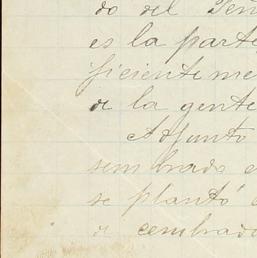 do del Señ
es la parte
ficienteme
de la gente
Adjunto
sembrado e
se plantó e
de cembrado